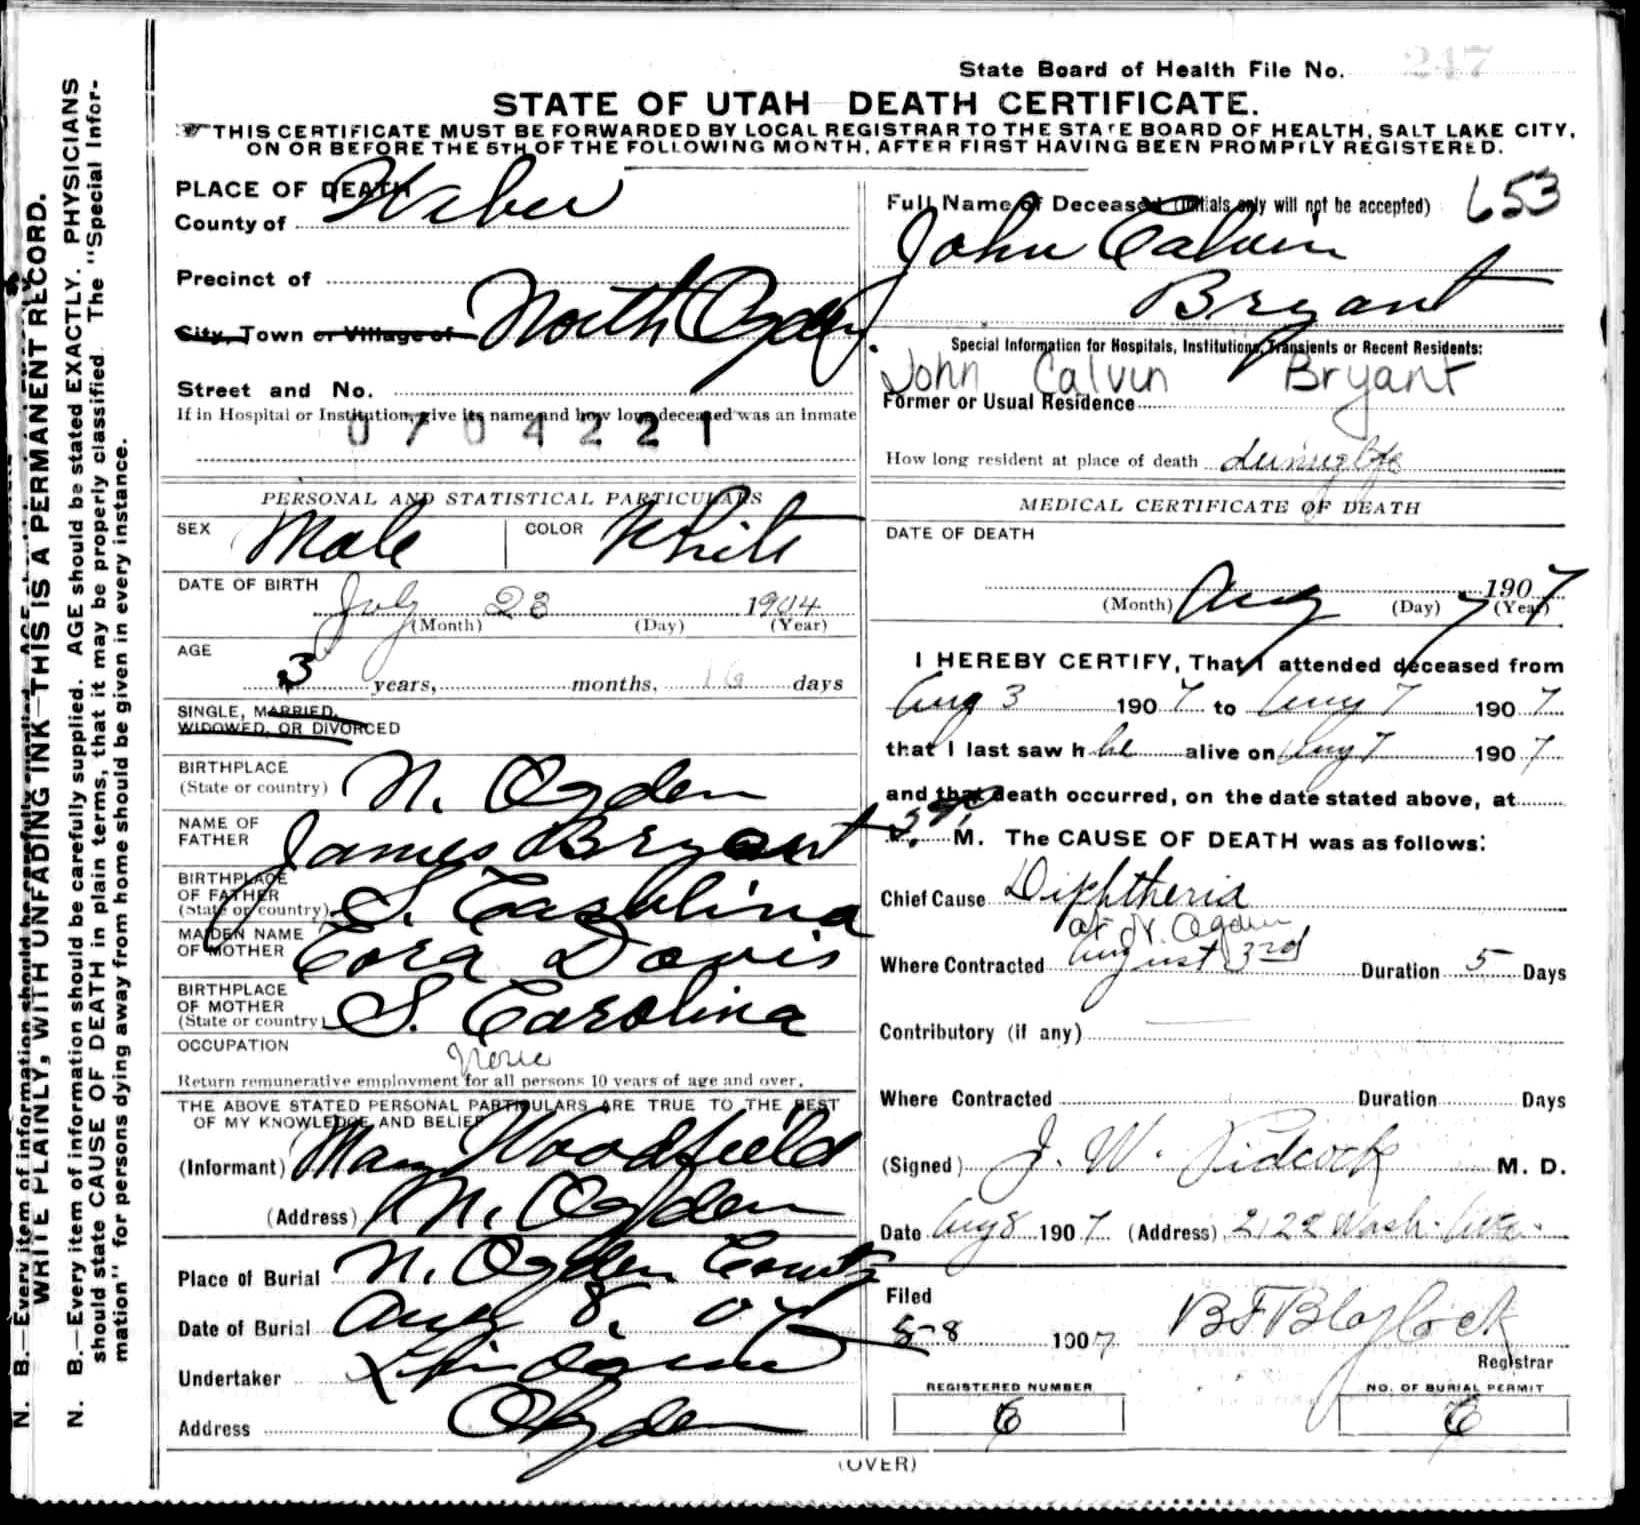 State Board of Health File No. 247
STATE OF UTAH DEATH CERTIFICATE.
THIS CERTIFICATE MUST BE FORWARDED BY LOCAL REGISTRAR TO THE STATE BOARD OF HEALTH, SALT LAKE CITY,
ON OR BEFORE THE 5TH OF THE FOLLOWING MONTH, AFTER FIRST HAVING BEEN PROMPTLY REGISTERED.
PLACE OF DEATH
County of Weber
Precinct of
City, Town or Village of North Ogden
Street and No.
If in Hospital or Institution, give its name and how long deceased was an inmate
0704221
PERSONAL AND STATISTICAL PARTICULARS
SEX Male COLOR White
DATE OF BIRTH
July 23 1904
(Month) (Day) (Year)
AGE
3 years, months, days
SINGLE, MARRIED,
WIDOWED, OR DIVORCED
BIRTHPLACE
(State or country) N. Ogden
NAME OF
FATHER James Bryant
BIRTHPLACE
OF FATHER
(State or country) S. Carolina
MAIDEN NAME
OF MOTHER Cora Davis
BIRTHPLACE
OF MOTHER
(State or country) S. Carolina
OCCUPATION None
Return remunerative employment for all persons 10 years of age and over.
THE ABOVE STATED PERSONAL PARTICULARS ARE TRUE TO THE BEST
OF MY KNOWLEDGE AND BELIEF
(Informant) Mary Woodfield
(Address) N. Ogden
Place of Burial N. Ogden
Date of Burial Aug 8, 07
Undertaker
Address Ogden
653
Full Name of Deceased (Initials only will not be accepted)
John Calvin
Bryant
Special Information for Hospitals, Institutions, Transients or Recent Residents:
John Calvin Bryant
Former or Usual Residence
How long resident at place of death during life
MEDICAL CERTIFICATE OF DEATH
DATE OF DEATH
Aug 7 1907
(Month) (Day) (Year)
I HEREBY CERTIFY, That I attended deceased from
Aug 3 1907 to Aug 7 1907
that I last saw h alive on Aug 7 1907
and that death occurred, on the date stated above, at
M. The CAUSE OF DEATH was as follows:
Chief Cause Diphtheria
at N. Ogden
Where Contracted August 3rd Duration 5 Days
Contributory (if any)
Where Contracted Duration Days
(Signed) J. W. Pidcock M. D.
Date Aug 8 1907 (Address) 2122 Wash. Ave.
Filed
8 1907 B F Blaylock
Registrar
REGISTERED NUMBER
6
NO. OF BURIAL PERMIT
6
(OVER)
N. B.—Every item of information should be carefully supplied. AGE
WRITE PLAINLY, WITH UNFADING INK—THIS IS A PERMANENT RECORD.
N. B.—Every item of information should be carefully supplied. AGE should be stated EXACTLY. PHYSICIANS
should state CAUSE OF DEATH in plain terms, that it may be properly classified. The "Special Infor-
mation" for persons dying away from home should be given in every instance.